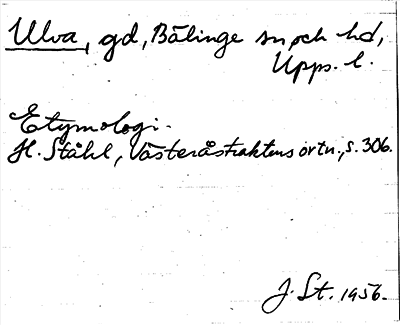 Ulva, gd, Bälinge sn och hd,
Upps. l.
Etymologi.
H. Ståhl, Västeråstraktens ortn., s. 306.
J. St. 1956.